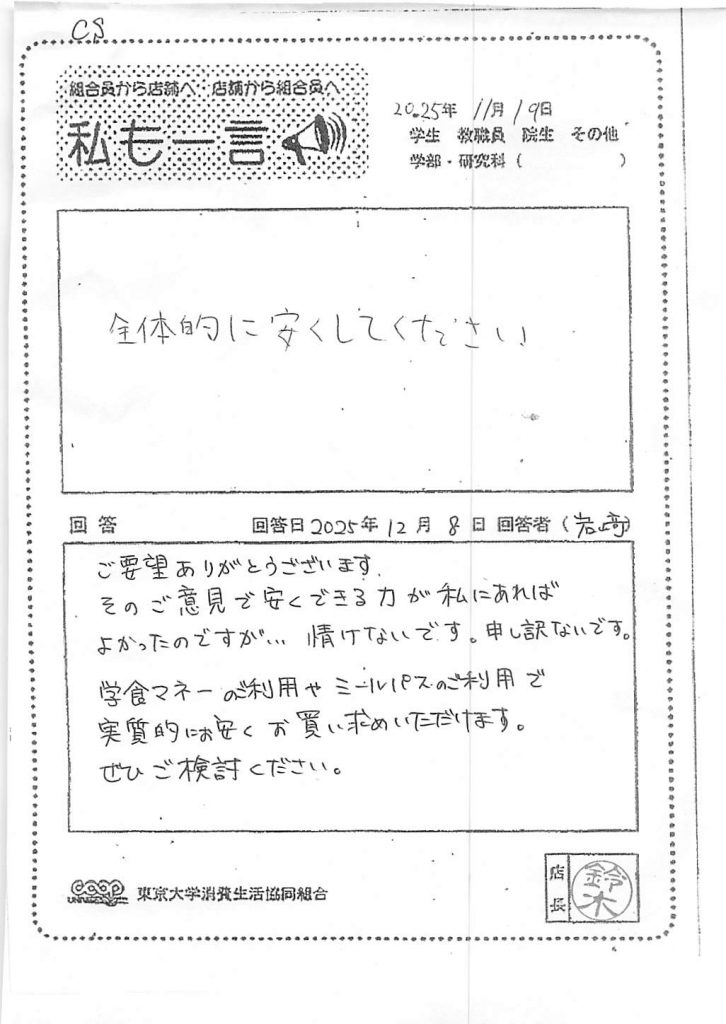 CS
組合員から店舗へ 店舗から組合員へ
私も一言
2025年 11月 19日
学生 教職員 院生 その他
学部・研究科 ( )
全体的に安くしてください
回答 回答日 2025年 12月 8日 回答者 (岩崎)
ご要望ありがとうございます。
そのご意見で安くできる力が私にあれば
よかったのですが… 情けないです。申し訳ないです。
学食マネーのご利用やミールパスのご利用で
実質的にお安くお買い求めいただけます。
ぜひご検討ください。
coop 東京大学消費生活協同組合
店長 鈴木